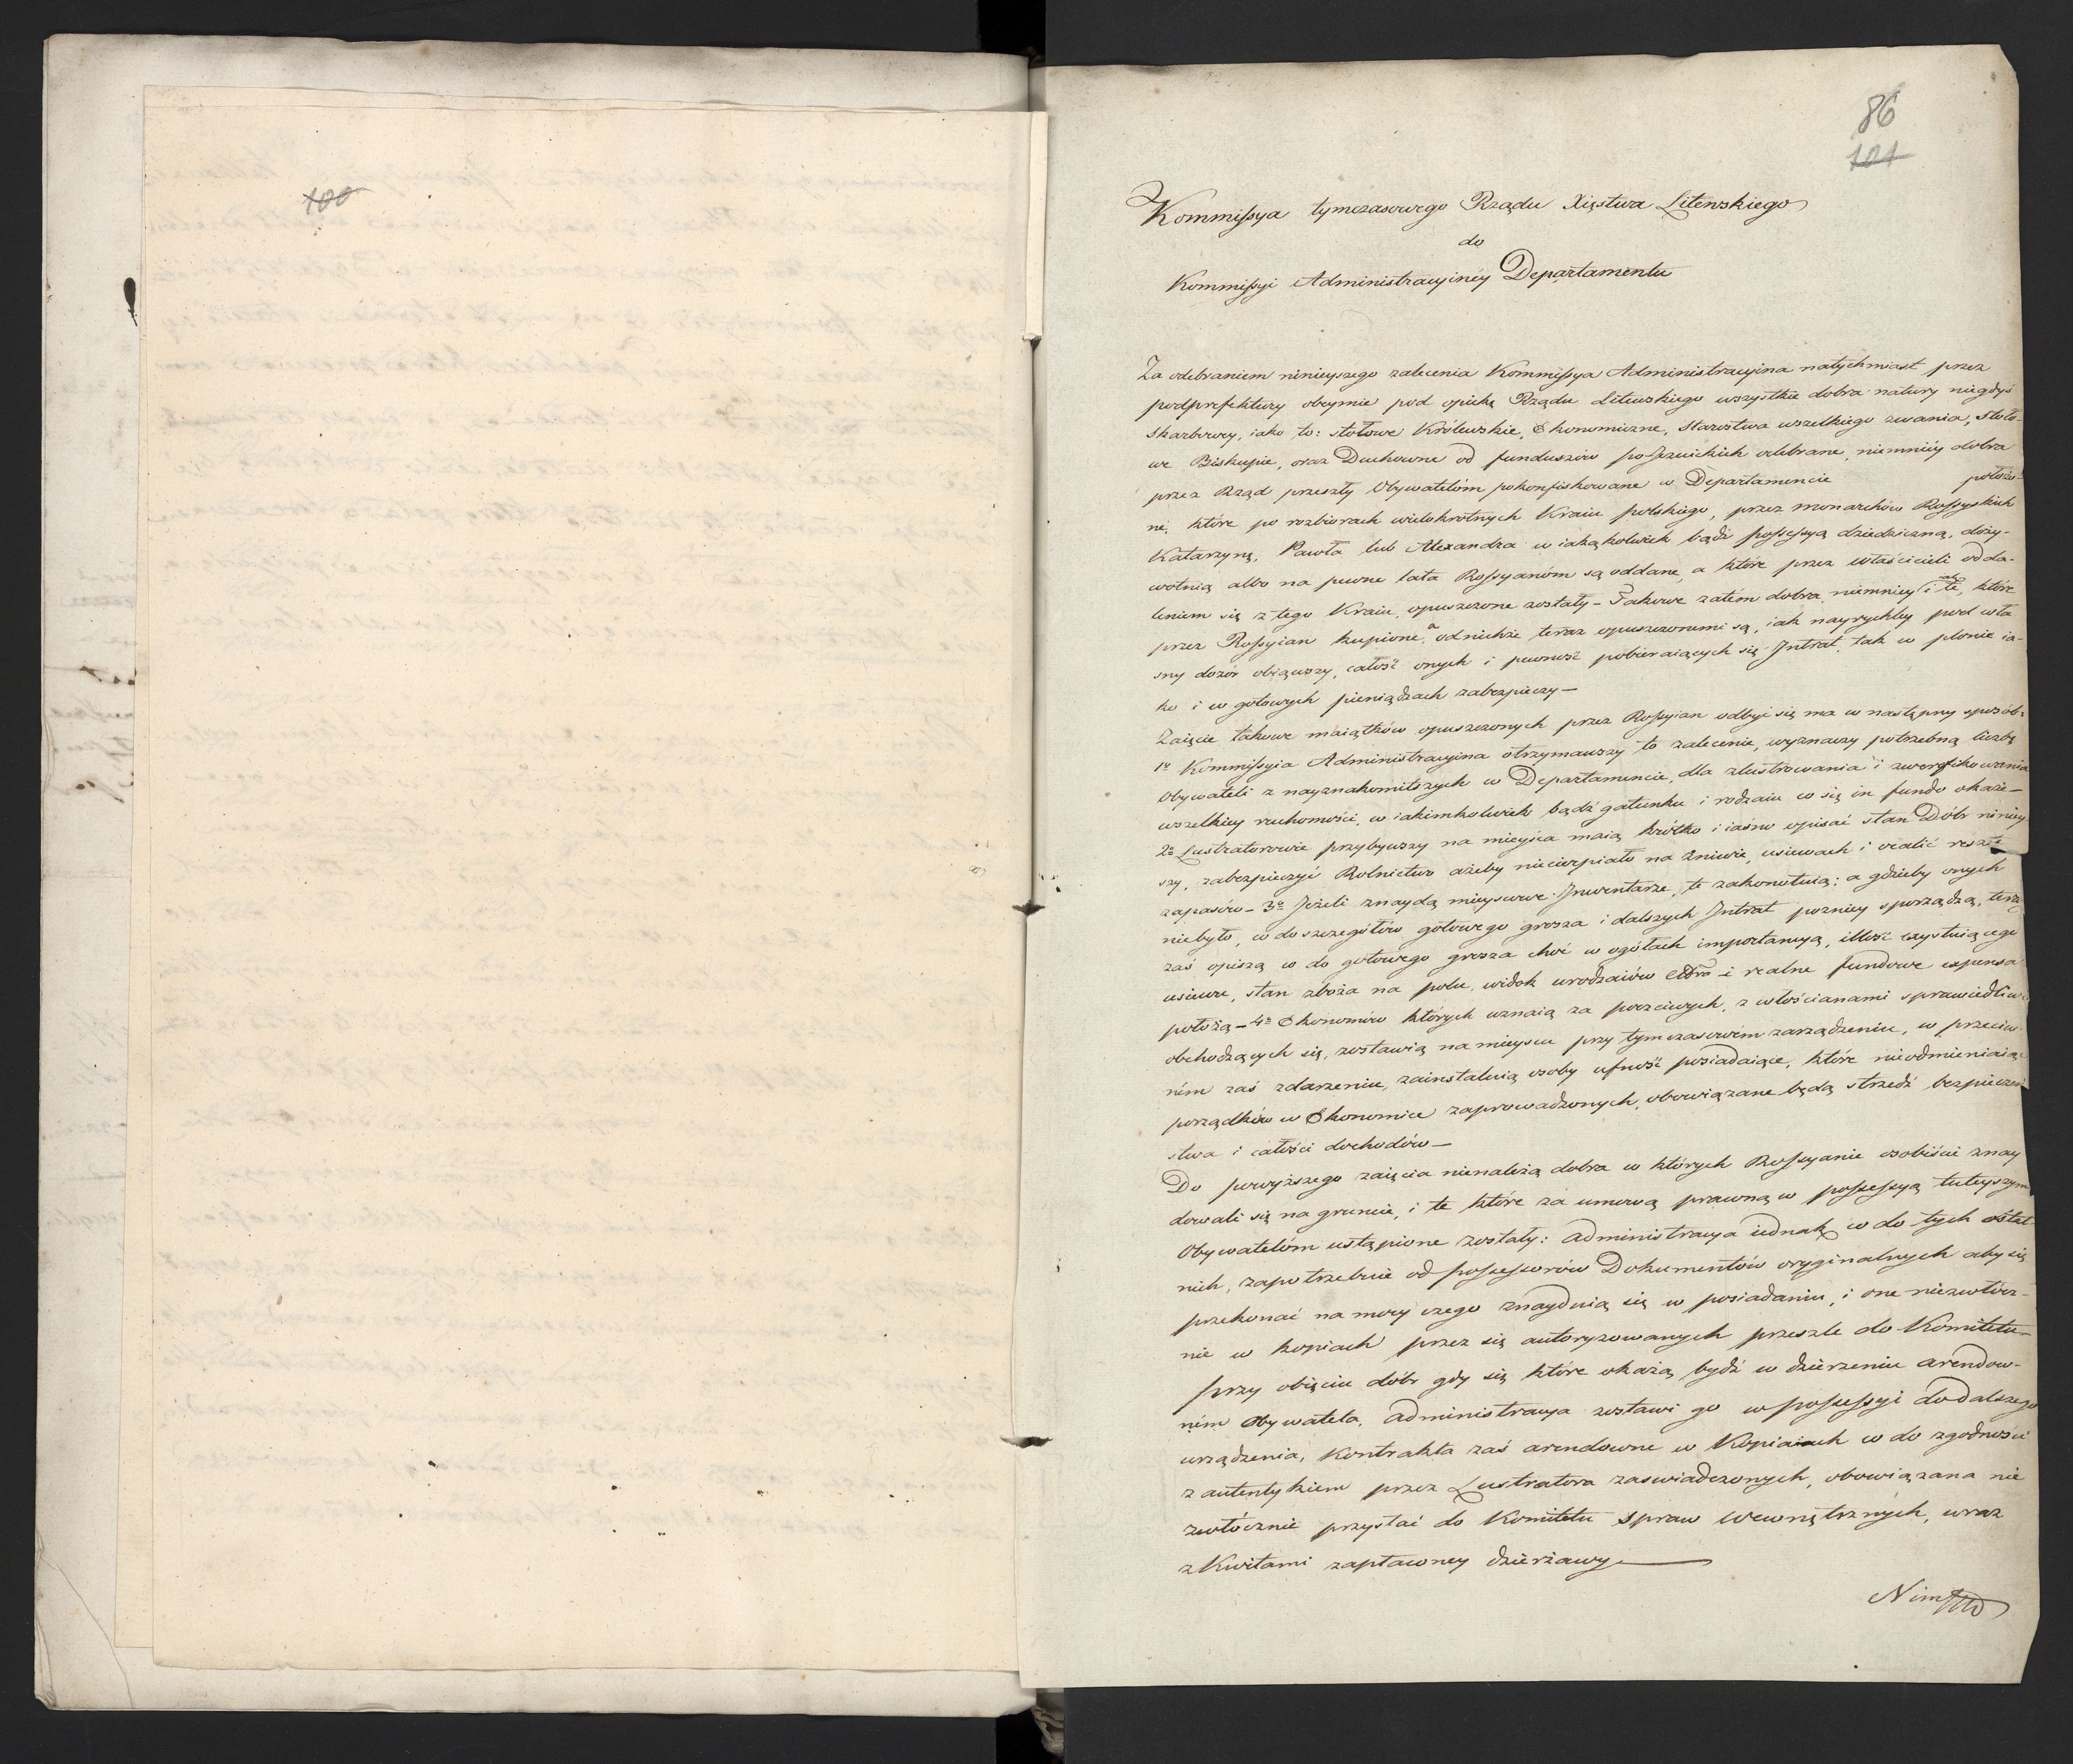 100
86
101
Kommissya tymczasowego Rządu Xięstwa Litewskiego
do
Kommissyi Administracyiney Departamentu
Za odebraniem ninieyszego zalecenia Kommissya Administracyina natychmiast przez
podprefektury obeymie pod opiekę Rządu Litewskiego wszystkie dobra natury niegdyś
Skarbowey, iako to: stołowe Królewskie, Ekonomiczne, Starostwa wszelkiego zwania, stoło-
we Biskupie, oraz Duchowne od funduszów pojezuickich odebrane, niemniéy dobra
przez Rząd przeszły Obywatelóm pokonfiskowane w Departamencie położo-
ne, które po rozbiorach wielokrotnych Kraiu polskiego, przez monarchów Rossyyskich
Katarzynę, Pawła lub Alexandra w iakąkolwiek bądź possessyą dziedziczną, doży-
wotnią albo na pewne lata Rossyanóm są oddane, a które przez właścicieli odda-
leniem się z tego Kraiu, opuszczone zostały – Takowe zatém dobra, niemniey i te, które
przez Rossyian kupione, a od nichże teraz opuszczonemi są, iak nayrychley pod wła
sny dozór obiąwszy, całość onych i pewność pobieraiących się Jntrat, tak w plonie ia-
ko i w gotowych pieniądzach zabezpieczy –
Zaięcie takowe maiątków opuszczonych przez Rossyian odbyć się ma w następny sposób:
1o Kommissyia Administracyina otrzymawszy to zalecenie, wyznaczy potrzebną liczbę
Obywateli z nayznakomitszych w Departamencie, dla zlustrowania i zweryfikowania
wszelkiey ruchomości, w iakimkolwiek bądź gatunku i rodzaiu co się in fundo okaże –
2o Lustratorowie przybywszy na mieysca maią krótko i iaśno opisać stan Dóbr niniey
szy, zabezpieczyć Rolnictwo ażeby niecierpiało na żniwie, usiewach i ocalić resztę
zapasów – 3o Jeżeli znaydą mieyscowe Jnwentarze, te zakonotuią; a gdzieby onych
niebyło, co do szczegółów gotowego grosza i dalszych Jntrat pozniey sporządzą, teraz
zaś opiszą co do gotowego grosza choć w ogółach importancyą, ilłość exystuiącego
usiewu, stan zboża na polu, widok urodzaiów i realne fundowe expensa
położą – 4o Ekonomów których uznaią za poczciwych, z włościanami sprawiedliwie
obchodzących się, zostawią na mieyscu przy tymczasowém zarządzeniu, w przeciw-
ném zaś zdarzeniu, zainstaluią osoby ufność posiadaiące, które nieodmieniaiąc
porządków w Ekonomice zaprowadzonych, obowiązane będą strzedz bezpieczeń
stwa i całości dochodów –
Do powyższego zaięcia nienależą dobra w których Rossyanie osobiście znay
dowali się na gruncie, i te które za umową prawną w possessyą tuteyszym
Obywatelóm ustąpione zostały: Administracya iednak co do tych ostat-
nich, zapotrzebuie od possessorów Dokumentów oryginalnych aby się
przekonać na mocy czego znayduią się w posiadaniu, i one niezwłócz-
nie w kopiach przez się autoryzowanych przeszle do Komitetu –
Przy obięciu dóbr gdy się które okażą bydź w dzierżeniu arendow-
ném Obywatela, Administracya zostawi go w possessyi do dalszego
urządzenia, Kontrakta zaś arendowne w Kopiach co do zgodności
z autentykiem przez Lustratora zaswiadczonych, obowiązana nie
zwłócznie przysłać do Komitetu spraw Wewnętrznych, wraz
z Kwitami zapłaconey dzierżawy –